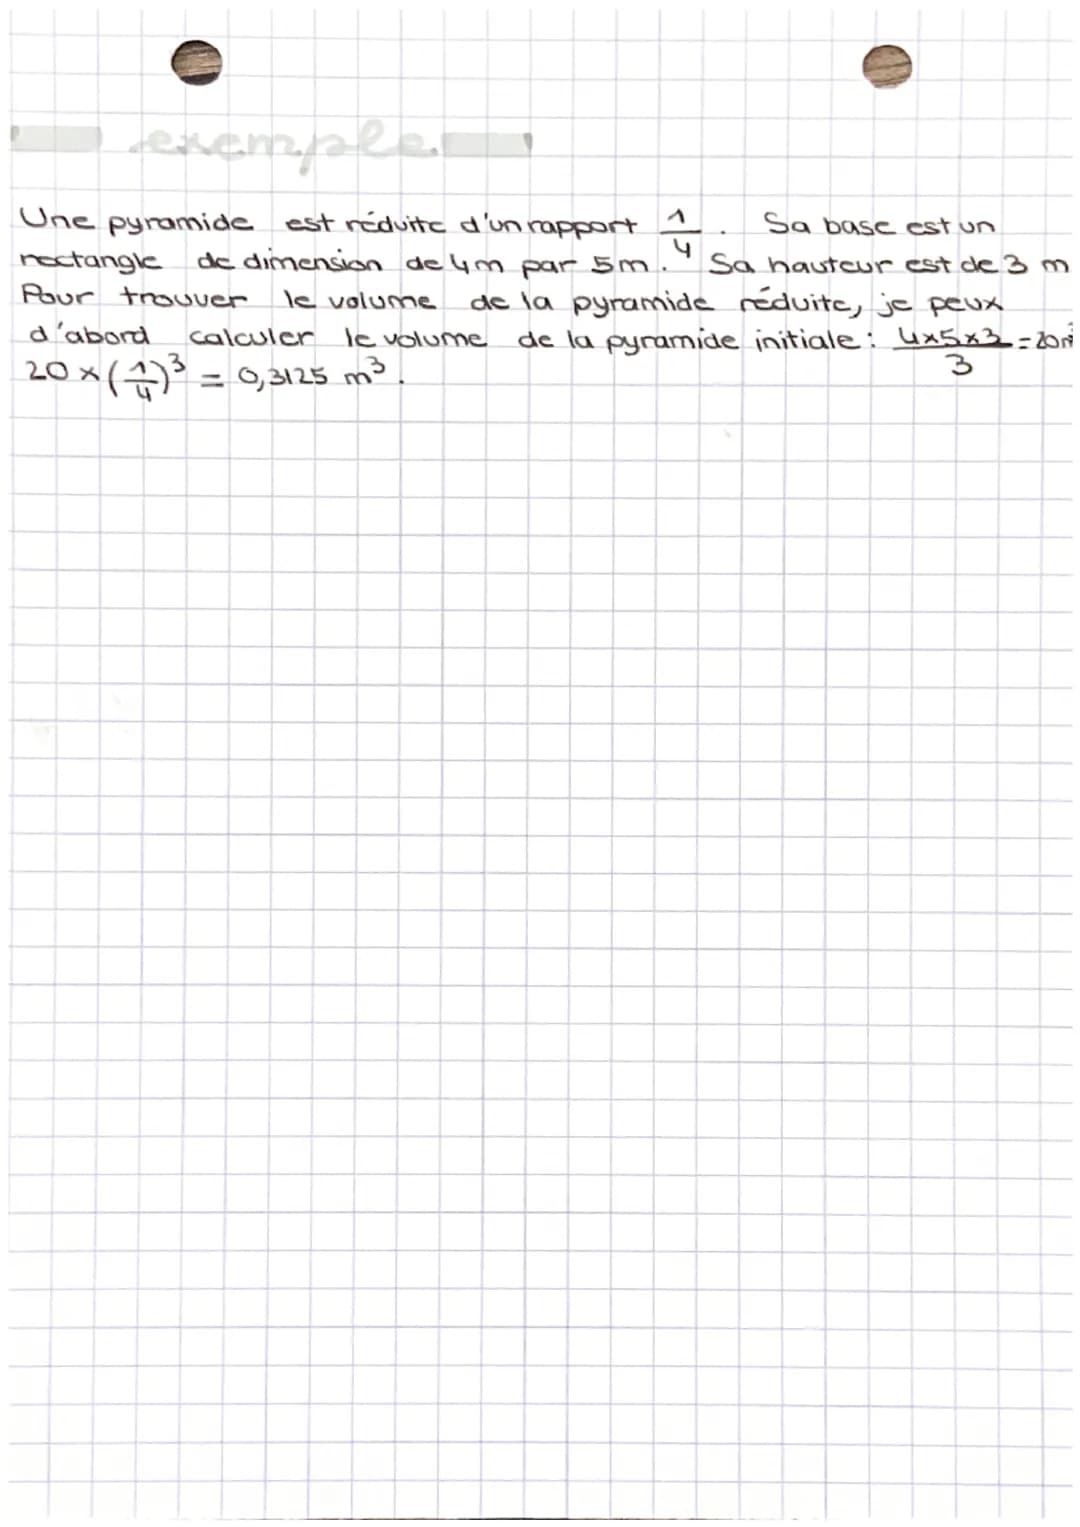 exemple.
Une pyramide est réduite d'un rapport 1/4. Sa base est un
rectangle de dimension de 4m par 5m. Sa hauteur est de 3 m
Pour trouver le volume de la pyramide réduite, je peux
d'abord calculer le volume de la pyramide initiale : 4×5×3/3 = 20m³
20 × (1/4)³ = 0,3125 m³.